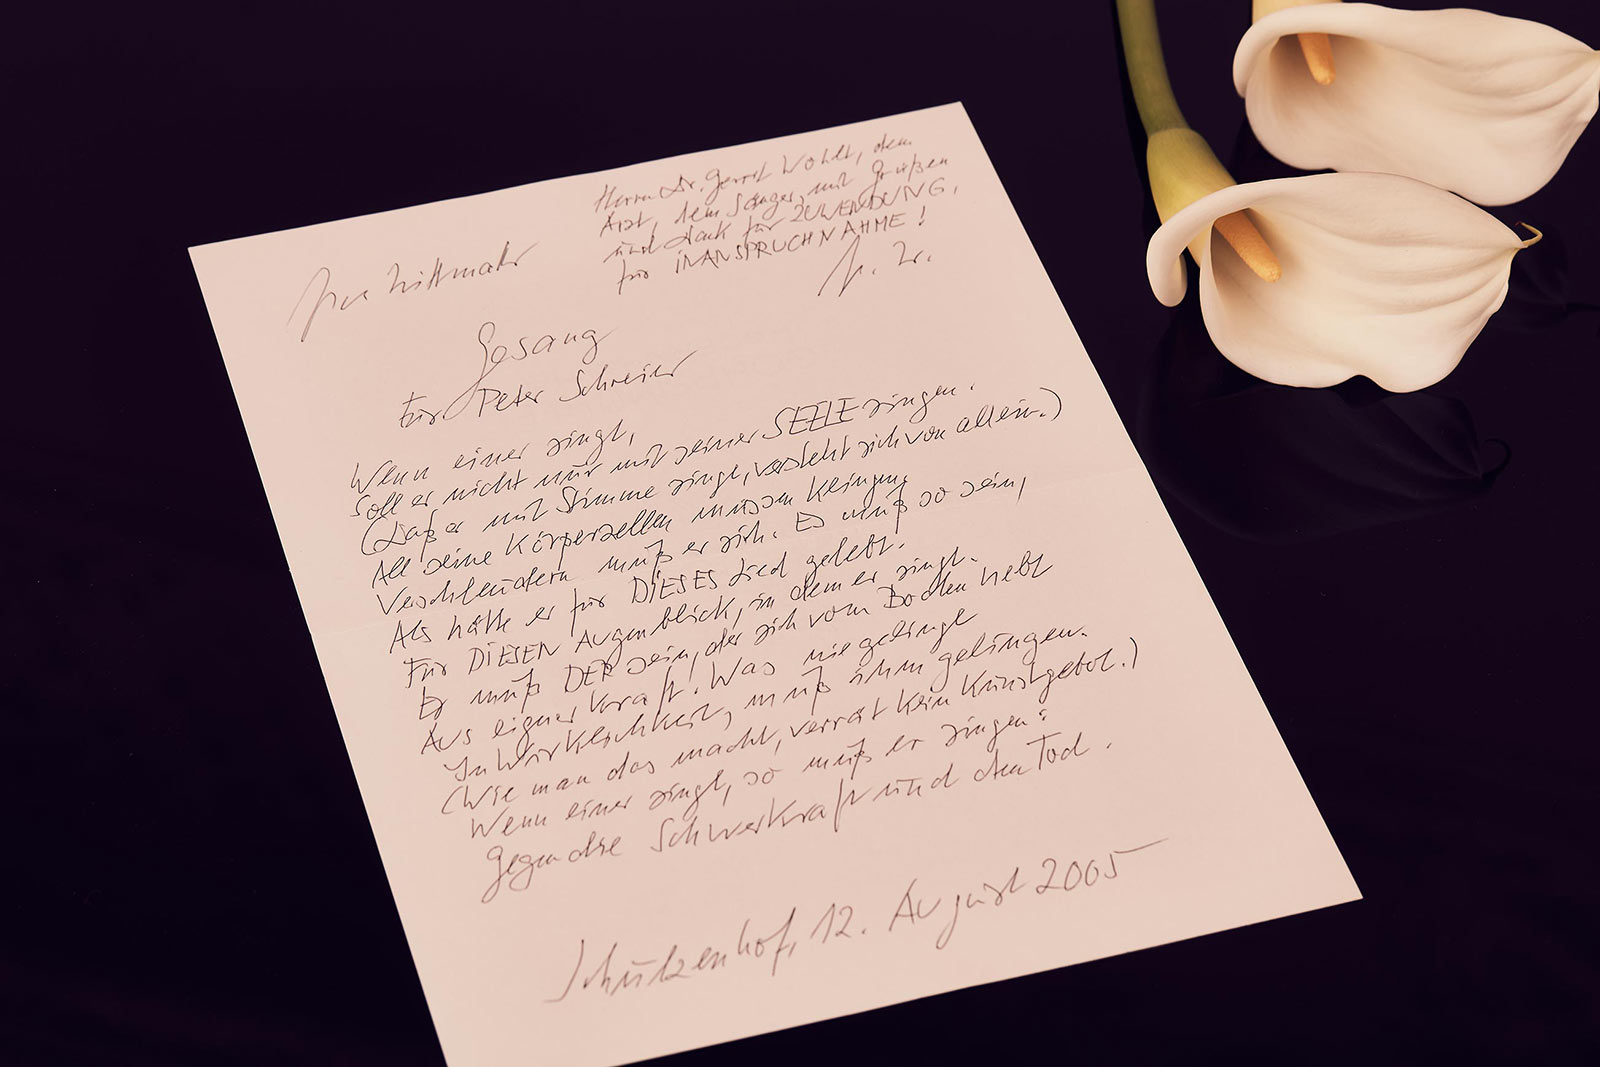 Herrn Dr. Gerrit Wohlt, dem
Arzt, dem Sänger, mit Grüßen
und Dank für ZUWENDUNG,
für INANSPRUCHNAHME!
Eva Strittmatter
Gesang
Für Peter Schreier
Wenn einer singt,
Soll er nicht nur mit seiner SEELE singen.
(Daß er mit Stimme singt, versteht sich von allein.)
All seine Körperzellen müssen klingen,
Verschleudern muß er sich. Es muß so sein,
Als hätte er für DIESES Lied gelebt.
Für DIESEN Augenblick, in dem er singt.
Er muß DER sein, der sich vom Boden hebt
Aus eigner Kraft. Was nie gelingt
In Wirklichkeit, muß ihm gelingen.
(Wie man das macht, verrät kein Kunstgebot.)
Wenn einer singt, so muß er singen:
Gegen die Schwerkraft und den Tod.
Schulzenhof, 12. August 2005